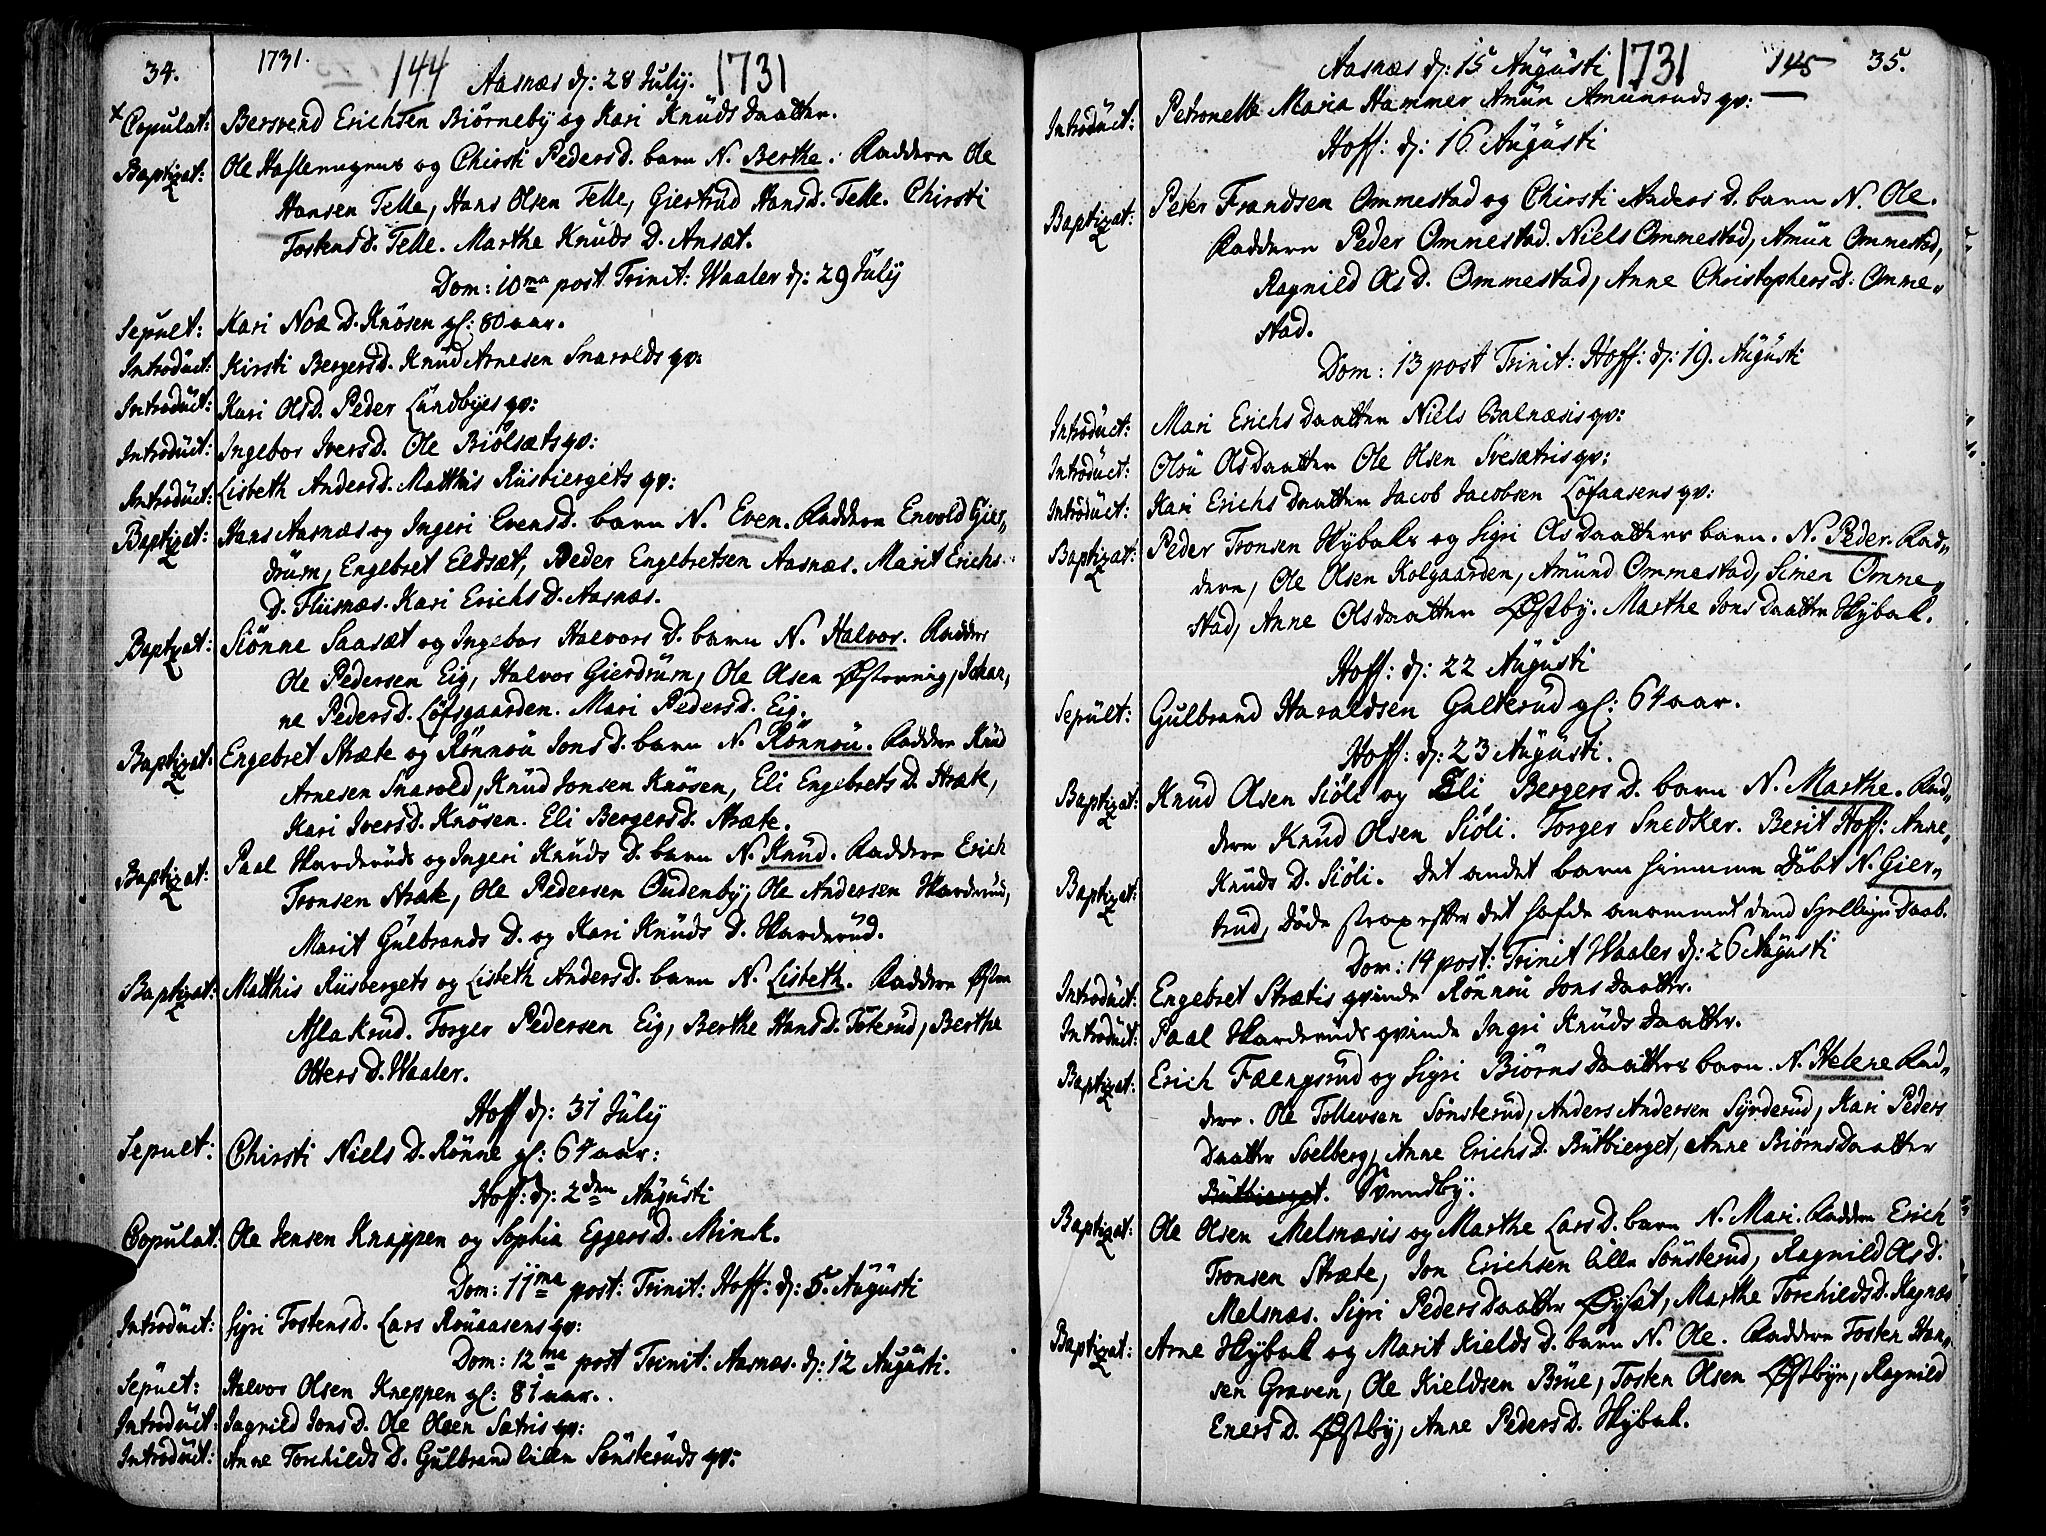 34.
1731.
144
Aasnæs d: 28 July.
1731
+ Copulat: Bersvend Erichsen Biørneby og Kari Knüds Daatter.
Baptizat: Ole Haslemagnus og Chirsti Pedersd. barn N. Berthe. Faddere Ole
Hansen Telle, Hans Olsen Telle, Giertrud Hansd. Telle. Chirsti
Tostensd. Telle. Marthe Knüds D. Ansæt.
Dom: 10ma post Trinit: Waaler d: 29 July
Sepult: Kari Noæ D. Knösen gl: 80 aar.
Introduct: Kirsti Bergersd. Knüd Arnesen Snarolds qv:
Introduct: Kari Olsd. Peder Lündbyes qv:
Introduct: Ingebor Iversd. Ole Biölsæts qv:
Introduct: Lisbeth Andersd. Matthis Riisbiergets qv:
Baptizat: Hans Aasnæs og Ingeri Evensd. barn N. Even. Faddere Envold Gier„
drüm, Engebret Eldsæt, Peder Engebretsen Aasnæs. Marit Erichs
D. Fliisnæs. Kari Erichs D. Aasnæs.
Baptizat: Siönne Saasæt og Ingebor Halvors D. barn N. Halvor. Faddere
Ole Pedersen Eig, Halvor Gierdrüm, Ole Olsen Østereng, Johan„
ne Pedersd. Löfsgaarden. Mari Pedersd. Eig.
Baptizat: Engebret Stræte og Rönnoü Jonsd. barn N. Rönnoü. Faddere Knüd
Arnesen Snarold, Knüd Jonsen Knösen, Eli Engebrets D. Stræte,
Kari Iversd. Knösen. Eli Bergersd. Stræte.
Baptizat: Paal Skarderüds og Ingeri Knüds D. barn N. Knüd. Faddere Erich
Tronsen Stræte, Ole Pedersen Oudenby, Ole Andersen Skarderüd,
Marit Gülbrands D. og Kari Knüds D. Skarderüd.
Baptizat: Matthis Riisbergets og Lisbeth Anders D. barn N. Lisbeth. Faddere Østen
Aslakrud. Torger Pedersen Eig, Berthe Hansd. Töterud, Berthe
Otters D. Waaler.
Hoff d: 31 Jüly
Sepult: Chirsti Niels D. Rönne gl: 64 aar:
Hoff: d: 2den Augüsti
Copulat: Ole Jensen Knappen og Sophia Eggersd. Mink.
Dom: 11ma post: Trinit: Hoff: d: 5 Augüsti
Introduct: Sigri Tostensd. Lars Roüaasens qv:
Dom: 12ma post Trinit: Aasnæs. d: 12 Augüsti.
Sepult: Halvor Olsen Kneppen gl: 81 aar.
Introduct: Ingrild Jons D. Ole Olsen Sætris qv:
Introduct: Anne Torchilds D. Gülbrand lille Sönsterüds qv:
Aasnæs d: 15 Augüsti
1731
145
35.
Introduct: Petronelle Maria Hammer Amün Amünruds qv:
Hoff: d: 16 Augüsti
Baptizat: Peter Frandsen Ommestad og Chirsti Anders D. barn N. Ole.
Faddere Peder Ommestad. Niels Ommestad, Amün Ommestad,
Ragnild Ols D. Ommestad, Anne Christophers D. Omme„
stad.
Dom: 13 post Trinit: Hoff: d: 19. Augüsti
Introduct: Mari Erichs Daatter Niels Balnæsis qv:
Introduct: Oloü Ols Daatter Ole Olsen Svesætris qv:
Introduct: Kari Erichs Daatter Jacob Jacobsen Löfaasens qv:
Baptizat: Peder Tronsen Skybaks og Sigri Ols Daatters barn. N. Peder. Fad„
dere, Ole Olsen Kolgaarden, Amünd Ommestad, Simen Omme„
stad, Anne Olsdaatter Østby. Marthe Jons Daatter Skybak.
Hoff: d: 22 Augüsti
Sepült: Gülbrand Haraldsen Galterud gl: 64 aar.
Hoff: d: 23 Augüsti.
Baptizat: Knüd Olsen Siöli og Eli Bergers D. barn N. Marthe. Fad„
dere Knüd Olsen Siöli. Torger Snedker. Berit Hoff: Anne
Baptizat: Knüds D. Siöli. Det andet barn hiemme Döbt N. Gier„
trud, Döde strax efter det hafde anammet dend Hellige Daab.
Dom: 14 post: Trinit Waaler d: 26 Augüsti
Introduct: Engebret Strætis qvinde Rönnoü Jons Daatter.
Introduct: Paal Skarderüds qvinde Ingri Knüds Daatter.
Baptizat: Erich Fæengsrüd og Sigri Biörns Daatters barn. N. Helene Fad„
dere. Ole Tollevsen Sönsterüd, Anders Andersen Synderüd, Kari Peders
Daatter Soelberg, Anne Erichs D. Bütbierget, Anne Biörns Daatter
Bütbierget. Svendby.
Baptizat: Ole Olsen Melsnæsis og Marthe Lars D. barn N. Mari. Faddere Erich
Tronsen Stræte, Jon Erichsen lille Sönsterüd, Ragnild Ols D.
Melsnæs. Sigri Peders Daatter Øysæt, Marthe Torchilds D. Ragnæs
Baptizat: Arne Skybak og Marit Kields D. barn N. Ole. Faddere Tosten Han„
sen Graven, Ole Kieldsen Brüe, Tosten Olsen Østbye, Ragnild
Eners D. Østby, Anne Peders D. Skybak.